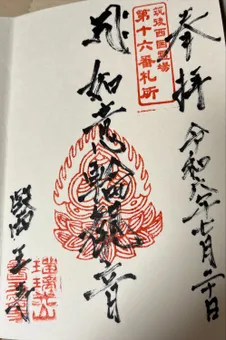 奉拝
令和八年七月二十日
筑後西国霊場
第十六番札所
如意輪観音
医王寺
瑠璃山